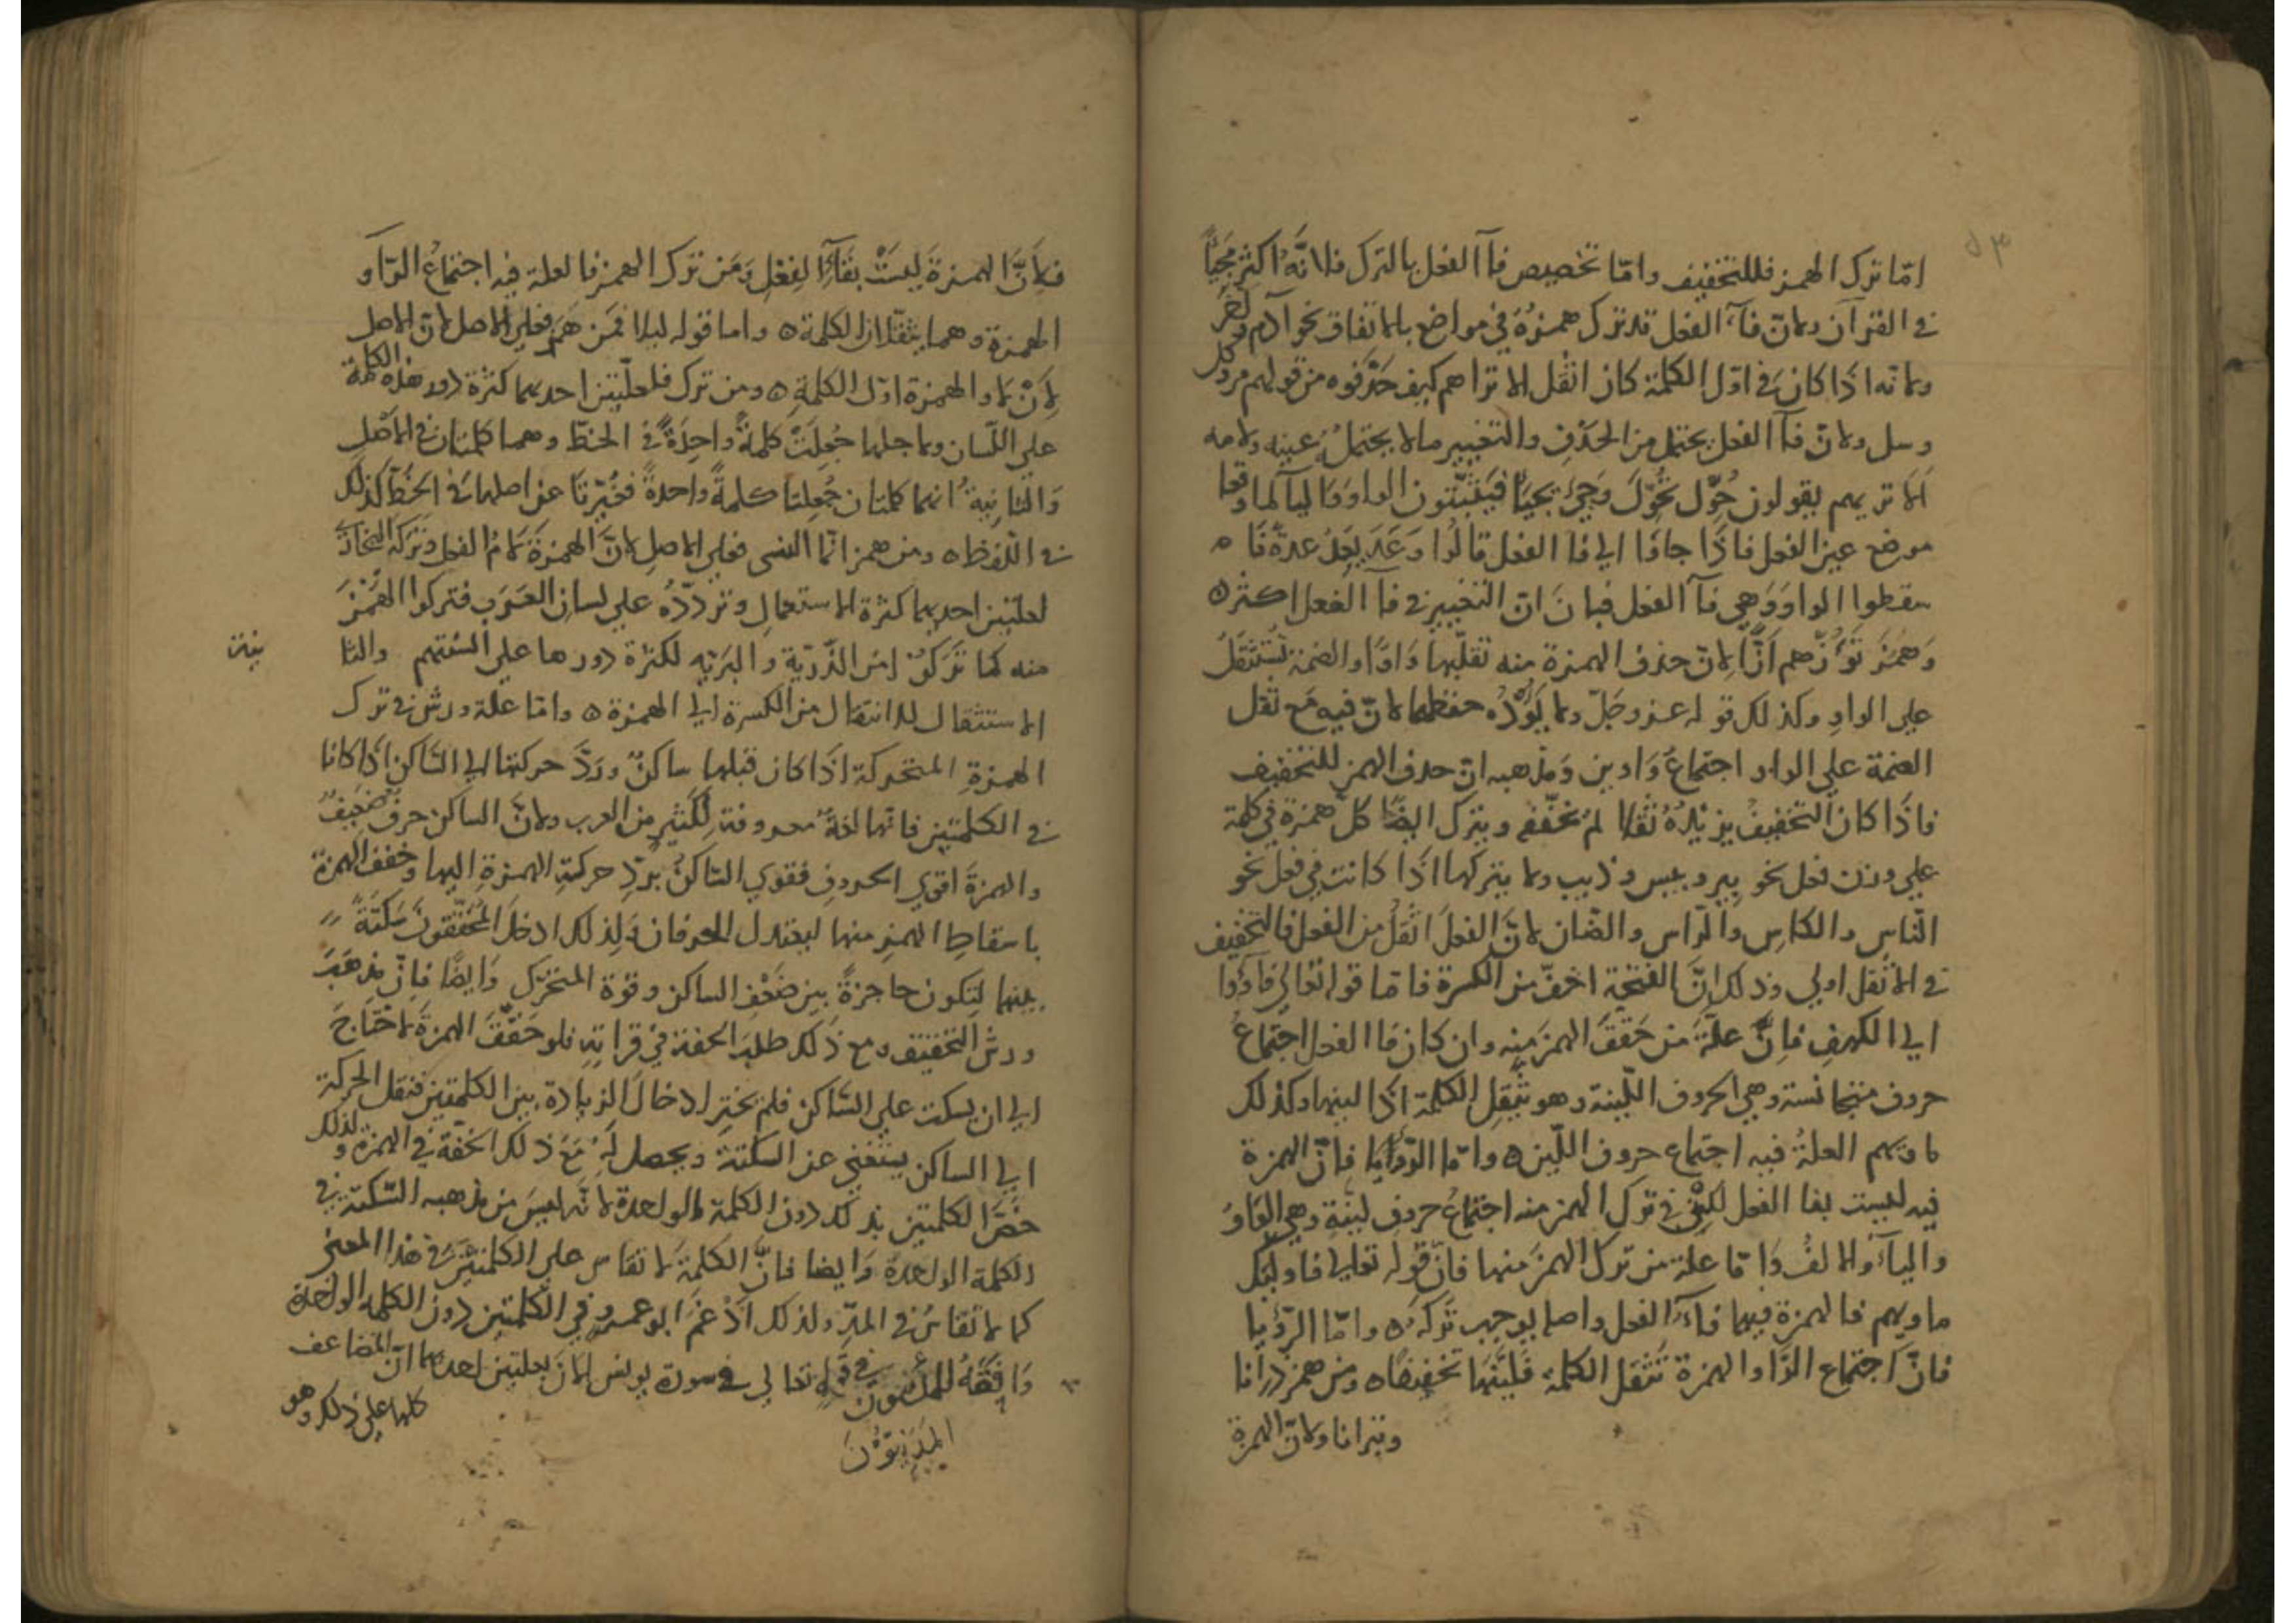 ٥٣
امّا ترك الهمز فللتخفيف وامّا تخصيص فآ الفعل بالترك فلانّه اكثر مجيًّا
في القرآن ولانّ فآء الفعل قد ترك همزه في مواضع بالاتفاق نحو آدم وآخر
ولانه اذا كان في اوّل الكلمة كان اثقل الا تراهم كيف حذفوه من قولهم مر وكل
وسل ولانّ فآ الفعل يحتمل من الحذف والتغيير مالا يحتمل عينه ولامه
الا تريهم يقولون حُوِّل نحوّل وحيى يحيا فيثبتون الواو واليا لما وقعا
موضع عين الفعل فاذا جاوا الي فا الفعل قالوا وعد يعد عدة فا
سقطوا الواو وهي فآ الفعل فبان انّ التغيير في فآ الفعل اكثر ه
وهمز تؤزّهم ازّا لانّ حذف الهمزة منه تقلبها واوًا والضمة تستثقل
علي الواو وكذلك قوله عز وجلّ ولا يؤده حفظهما لانّ فيه مع ثقل
الضمة علي الواو اجتماع واوين ومذهبه انّ حذف الهمز للتخفيف
فاذا كان التخفيف يزيده ثقلا لم يخفّف ويترك ايضا كلّ همزة في كلمة
علي وزن فعل نحو بير وبيس وذيب ولا يتركها اذا كانت في فعل نحو
النّاس والكاس والراس والضّان لانّ الفعل اثقل من الفعل فالتخفيف
في الاثقل اولي وذلك انّ الفتحة اخفّ من الكسرة فامّا قوله تعالي فاؤوا
الي الكهف فانّ علّة من حقّق الهمز منه وان كان فا الفعل اجتماع
حروف متجانسة وهي الحروف اللّينة وهو يثقل الكلمة اذا لينها وكذلك
ماويهم العلة فيه اجتماع حروف اللّين ه وامّا الرؤيا فانّ الهمزة
فيه ليست بفا الفعل لكن في ترك الهمز منه اجتماع حروف لينة وهي الواو
واليآ والالف وامّا علة من ترك الهمز منها فانّ قوله تعالي فاو
ماويهم فالهمزة فيها فآء الفعل واصله يوجب تركه ه وامّا الرؤيا
فانّ اجتماع الواو والهمزة تثقل الكلمة فليّنها تخفيفا ه ومن همز
ولانّ الهمزة
فلانّ الهمزة ليست بفآء الفعل ومن ترك الهمز فالعلة فيه اجتماع الواو
الهمزة وهما يثقلان الكلمة ه واما قوله ليلا فمن همز فعلي الاصل لانّ الاصل
لان لا والهمزة اوّل الكلمة ه ومن ترك فلعلّتين احديهما كثرة دور هذه الكلمة
علي اللّسان ولاجلها جعلت كلمة واحدة في الخطّ وهما كلمتان في الاصل
والثانية انهما كلمتان جعلتا كلمة واحدة فغيّرتا عن اصلهما في الخطّ كذلك
في اللّفظ ه ومن همز انّما النسى فعلي الاصل لانّ الهمزة لام الفعل وتركه
لعلّتين احديهما كثرة الاستعمال وتردّده علي لسان العرب فتركوا الهمز
منه كما تركوا من الذّريّة والبريّه لكثرة دورها علي السنتهم والثا
نية
الاستثقال للانتقال من الكسرة الي الهمزة ه وامّا علة ورش في ترك
الهمزة المتحركة اذا كان قبلها ساكن وردّ حركتها الي السّاكن اذا كانا
في الكلمتين فانّها لغة معروفة لكثير من العرب ولانّ الساكن حرف ضعيف
والهمزة اقوي الحروف فقوي السّاكن بردّ حركة الهمزة اليها وخفف الهمزة
باسقاط الهمز منها ليعتدل الحرفان ولذلك ادخل المحقّقون سكتة
بينهما لتكون حاجزة بين ضعف الساكن وقوة المتحرّك وايضًا فانّ مذهب
ورش التخفيف ومع ذلك طلب الخفة في قراته فلو حقّق الهمزة لاحتاج
الي ان يسكت علي السّاكن فلم يختر ادخال الزيادة بين الكلمتين فنقل الحركة
الي الساكن يستغني عن السكتة ويحصل له مع ذلك الخفّة في الهمزة ولذلك
خصّ الكلمتين بذلك دون الكلمة الواحدة لانّه ليس من مذهبه السّكتة في
الكلمة الواحدة وايضا فانّ الكلمة لا تقاس علي الكلمتين في هذا المعني
كما لا تقاس في المدّ ولذلك ادغم ابو عمرو في الكلمتين دون الكلمة الواحدة
وافقه المدنيون في قوله تعالي في سورة يونس الان بعلتين احديهما انّ المضاعف
المدنيّون
كلها علي ذلك وهو